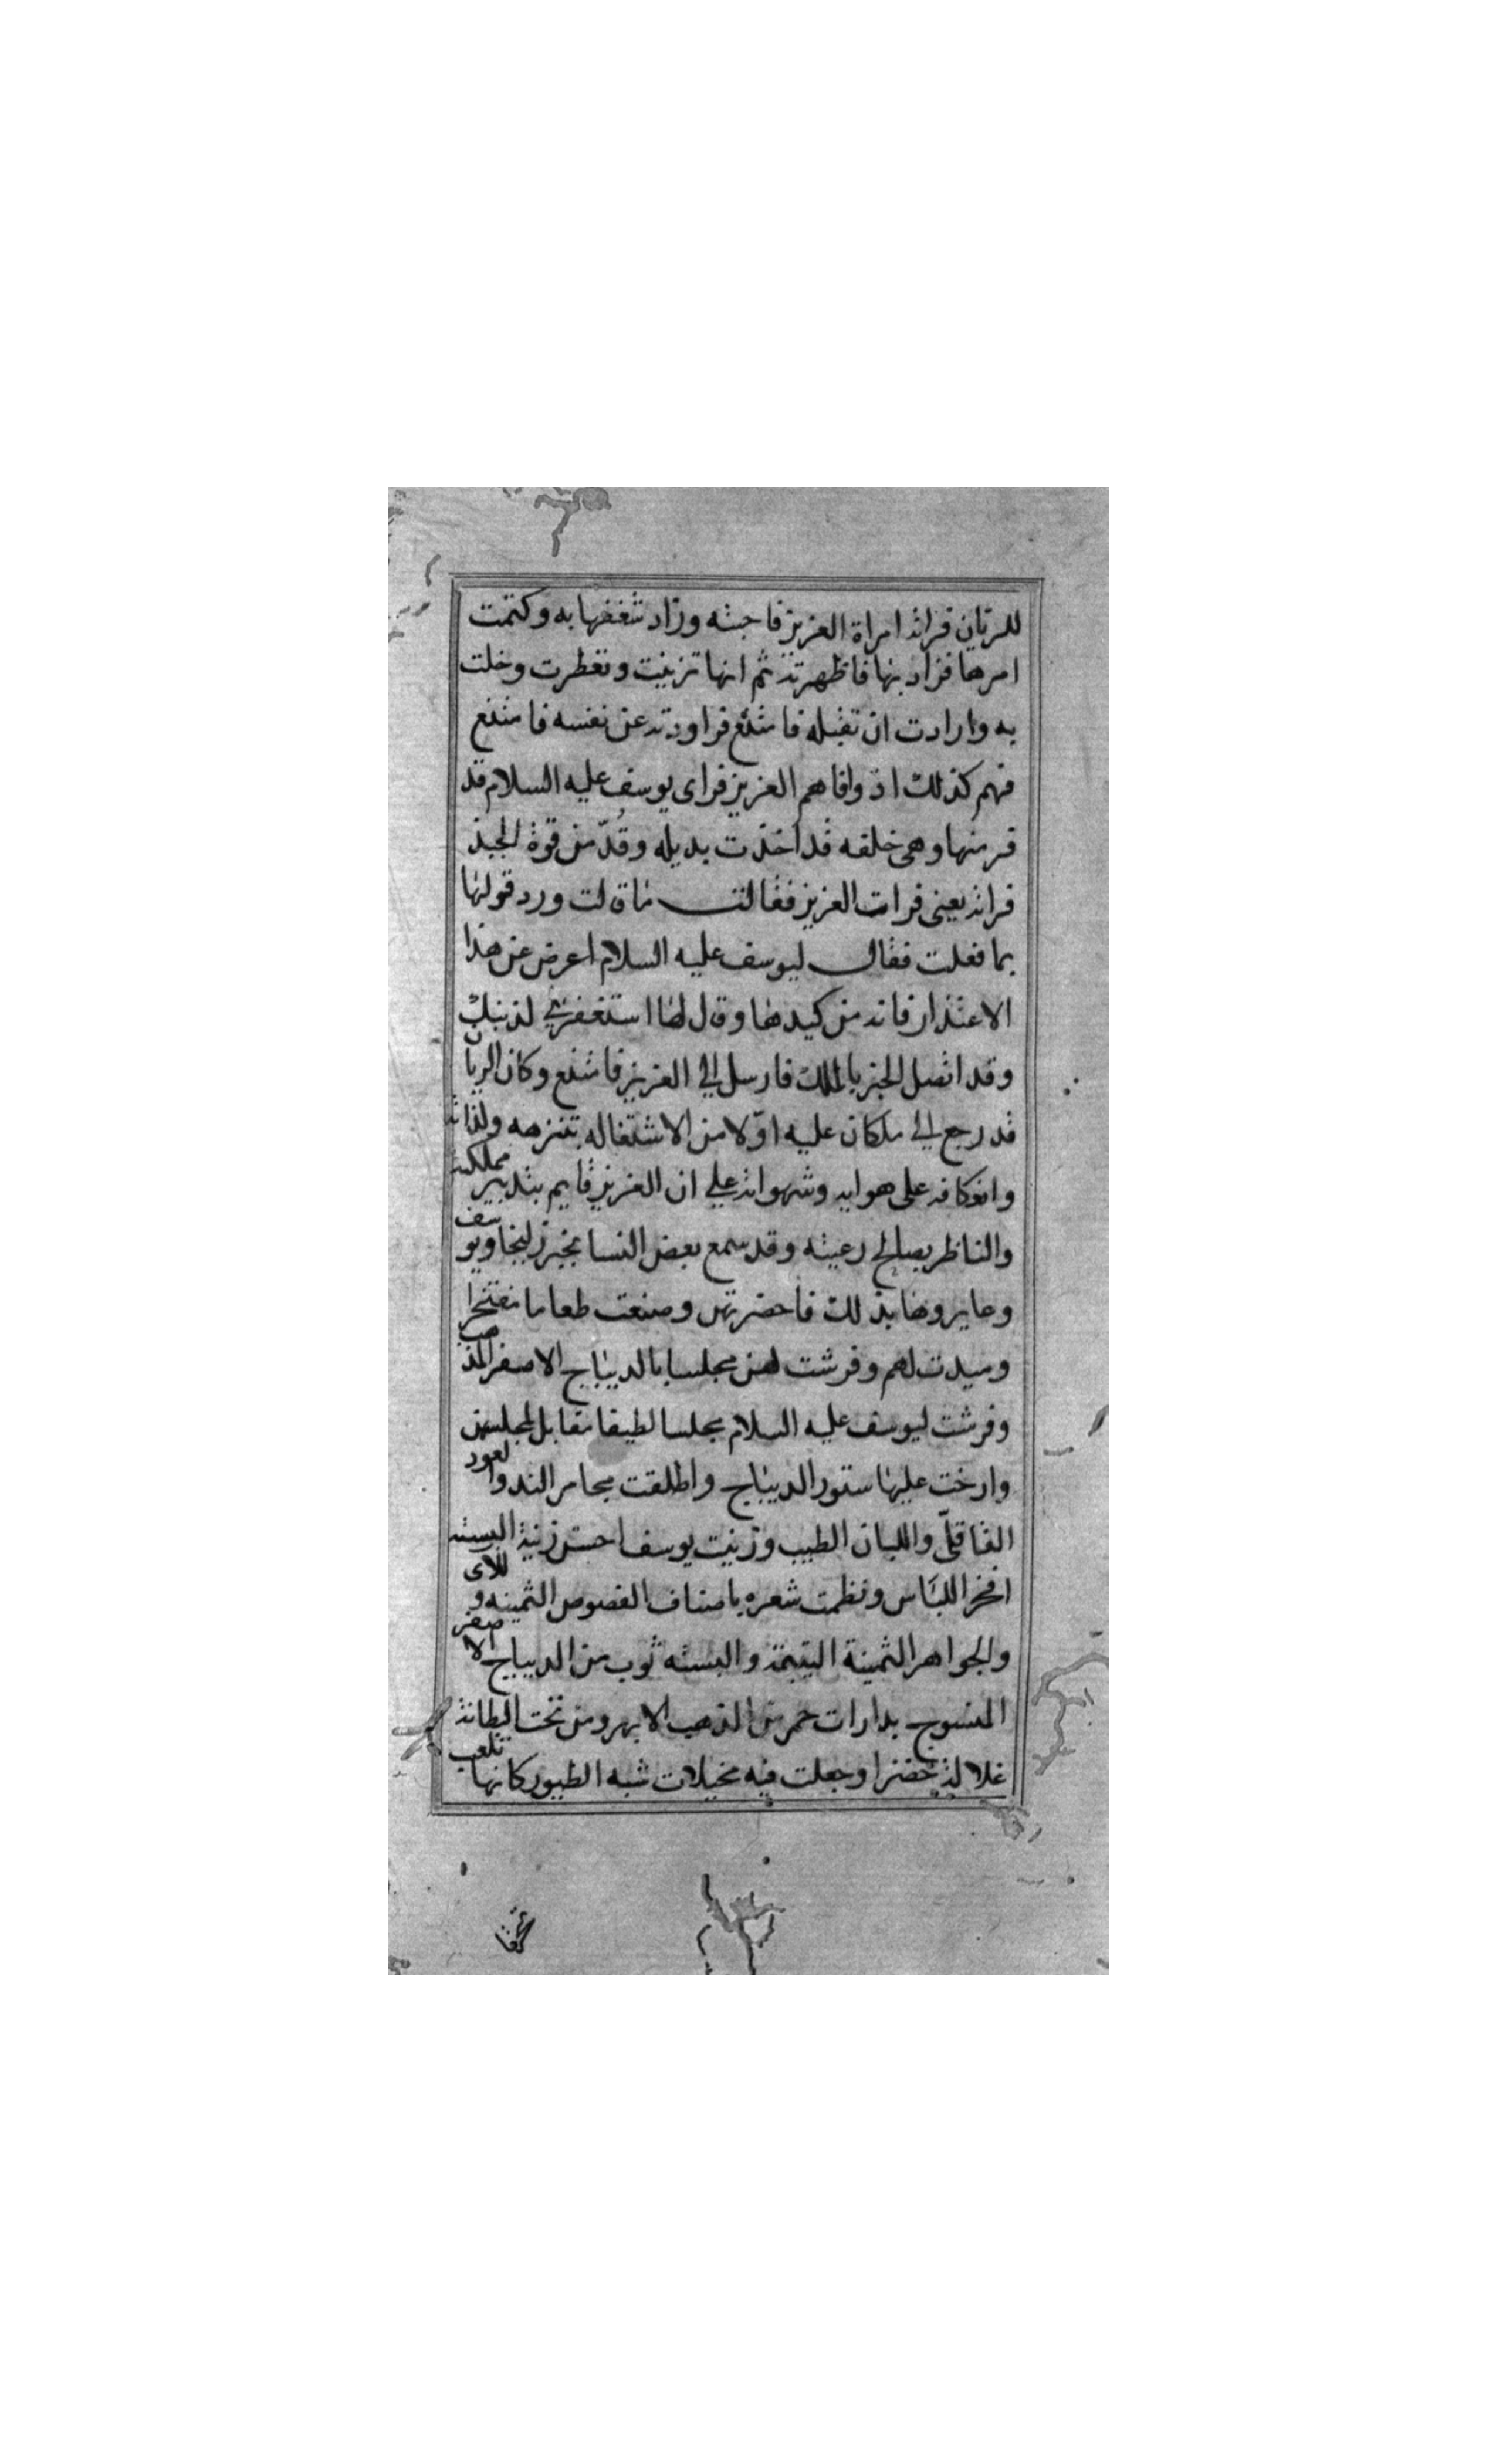 للريان فراته امراة العزيز فاحبته وزاد شغفها به وكتمت
امرها فزاد بها فاظهرته ثم انها تزينت وتعطرت وخلت
به وارادت ان تقبله فامتنع فراودته عن نفسه فامتنع
فهم كذلك اذ وافاهم العزيز فراى يوسف عليه السلام قد
فر منها وهى خلفه قد اخذت بديله وقُدّ من قوة الجبذ
فراته يعنى فرات العزيز فقالت ماقالت ورد قولها
بما فعلت فقال ليوسف عليه السلام اعرض عن هذا
الاعتذار فانه من كيدها وقال لها استغفرى لذنبك
وقد اتصل الخبر بالملك فارسل الي العزيز فامتنع وكان الريان
قد رجع الي ملكان عليه اوّلا من الاشتغاله بتنزهه ولذاته
وانعكافه على هوايه وشهواته علي ان العزيز قايم بتدبير مملكته
والناظر بصالح رعيته وقد سمع بعض النسا بخبر زليخا ويوسف
وعايروها بذلك فاحضرتهن وصنعت طعاما مفتخرا
وميدت لهم وفرشت لهن مجلسا بالديباج الاصفر المذهب
وفرشت ليوسف عليه السلام مجلسا لطيفا مقابل لمجلسهن
وارخت عليها ستور الديباج واطلقت مجامر الند والعود
القاقلّى واللبان الطيب وزينت يوسف احسن زينة البسته
افخر اللبَاس ونظمت شعره باصناف الفصوص الثمينه و للآى
والجواهر الثمينة اليتيمة والبسته ثوب من الديباج الاصفر
المنسوج بدارات حمر من الذهب الابهر ومن تحت البطانة
غلالة خضرا وجعلت فيه مخيلات شبه الطيور كانها تلعب